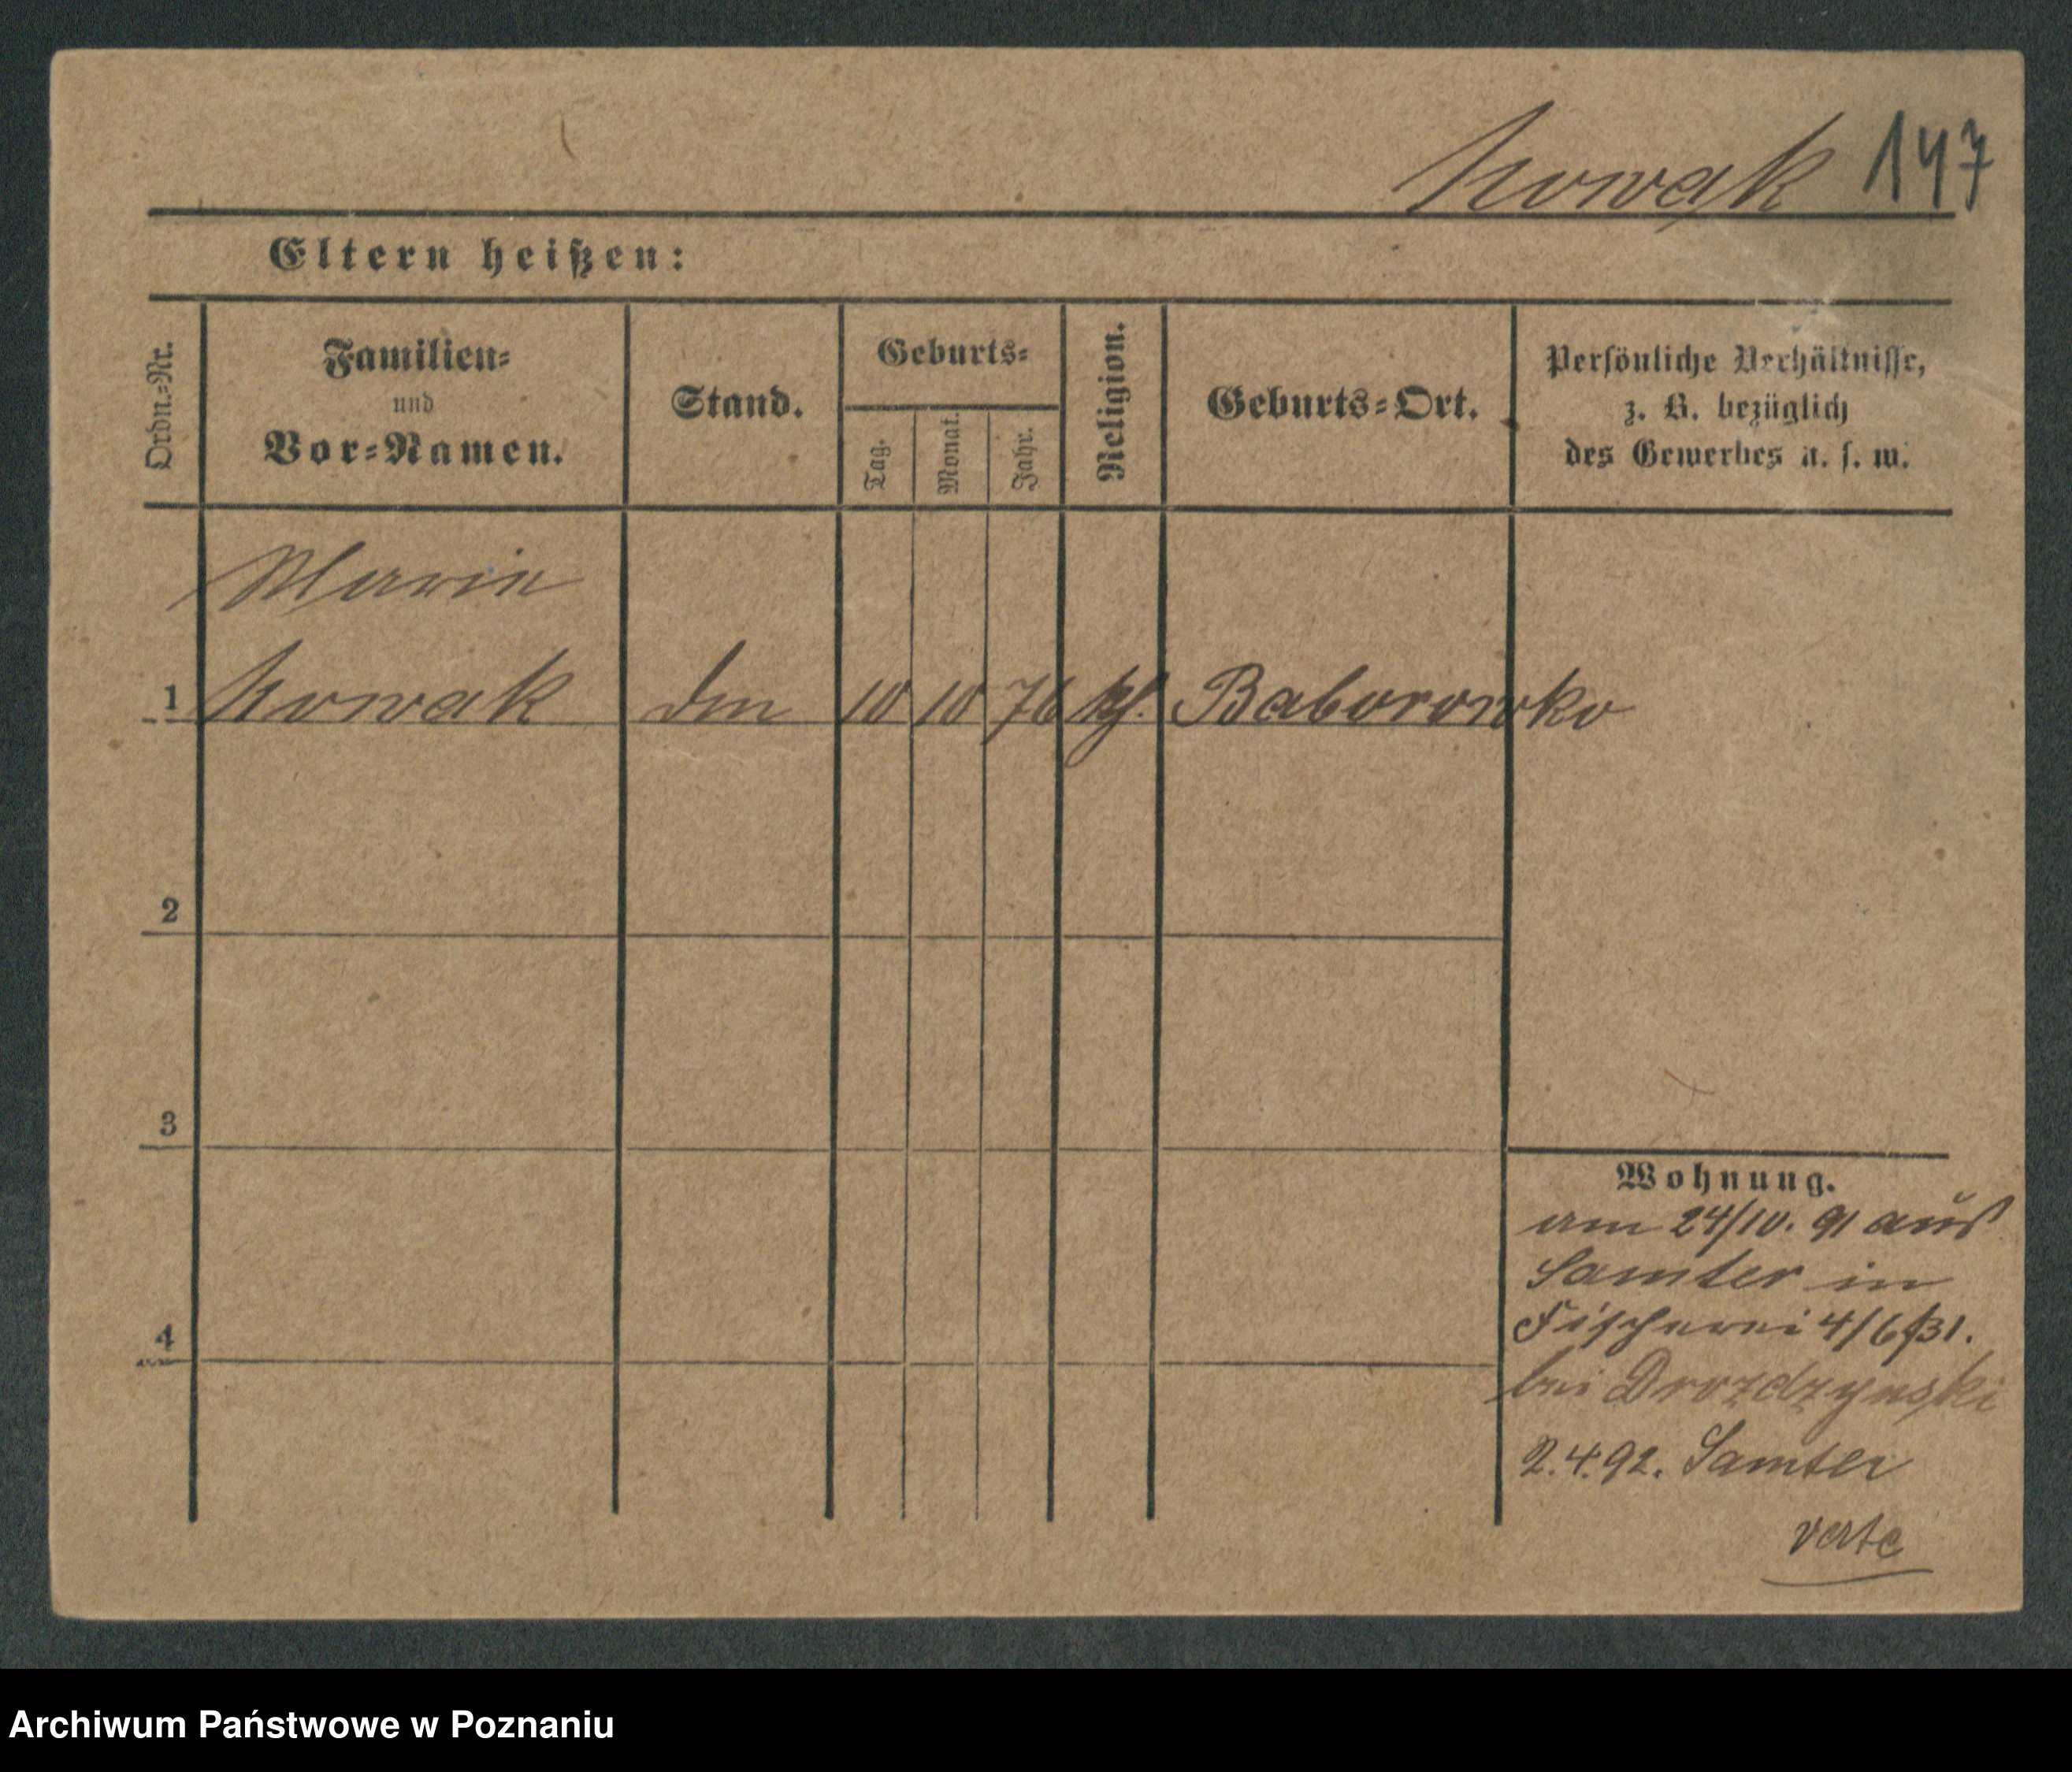 Nowak 147
Eltern heißen:
Ordn.=Nr.
Familien=
und
Vor=Namen.
Stand.
Geburts=
Tag.
Monat.
Jahr.
Religion.
Geburts=Ort.
Persönliche Verhältnisse,
z. B. bezüglich
des Gewerbes u. s. w.
Marie
1 Nowak den 10 10 76 kf. Baborowko
2
3
4
Wohnung.
am 24/10. 91 aus
Samter in
Fischerei 4/6 31.
bei Drozdzynski
2.4.92. Samter
verte
Archiwum Państwowe w Poznaniu